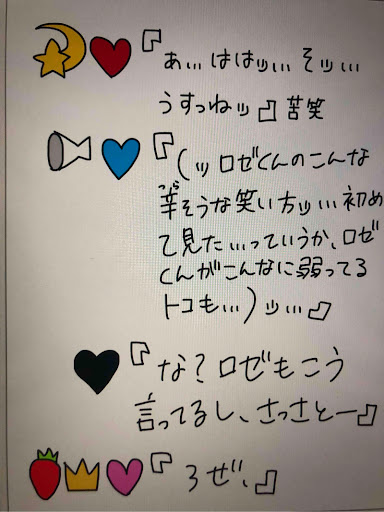 『ぁ…ははッ…そッ…
うすっねッ』苦笑
『(ッロゼくんのこんな
辛そうな笑い方ッ…初め
つら
て見た…っていうか、ロゼ
くんがこんなに弱ってる
トコも…)ッ…』
『な?ロゼもこう
言ってるし、さっさとー』
『ろぜ、』